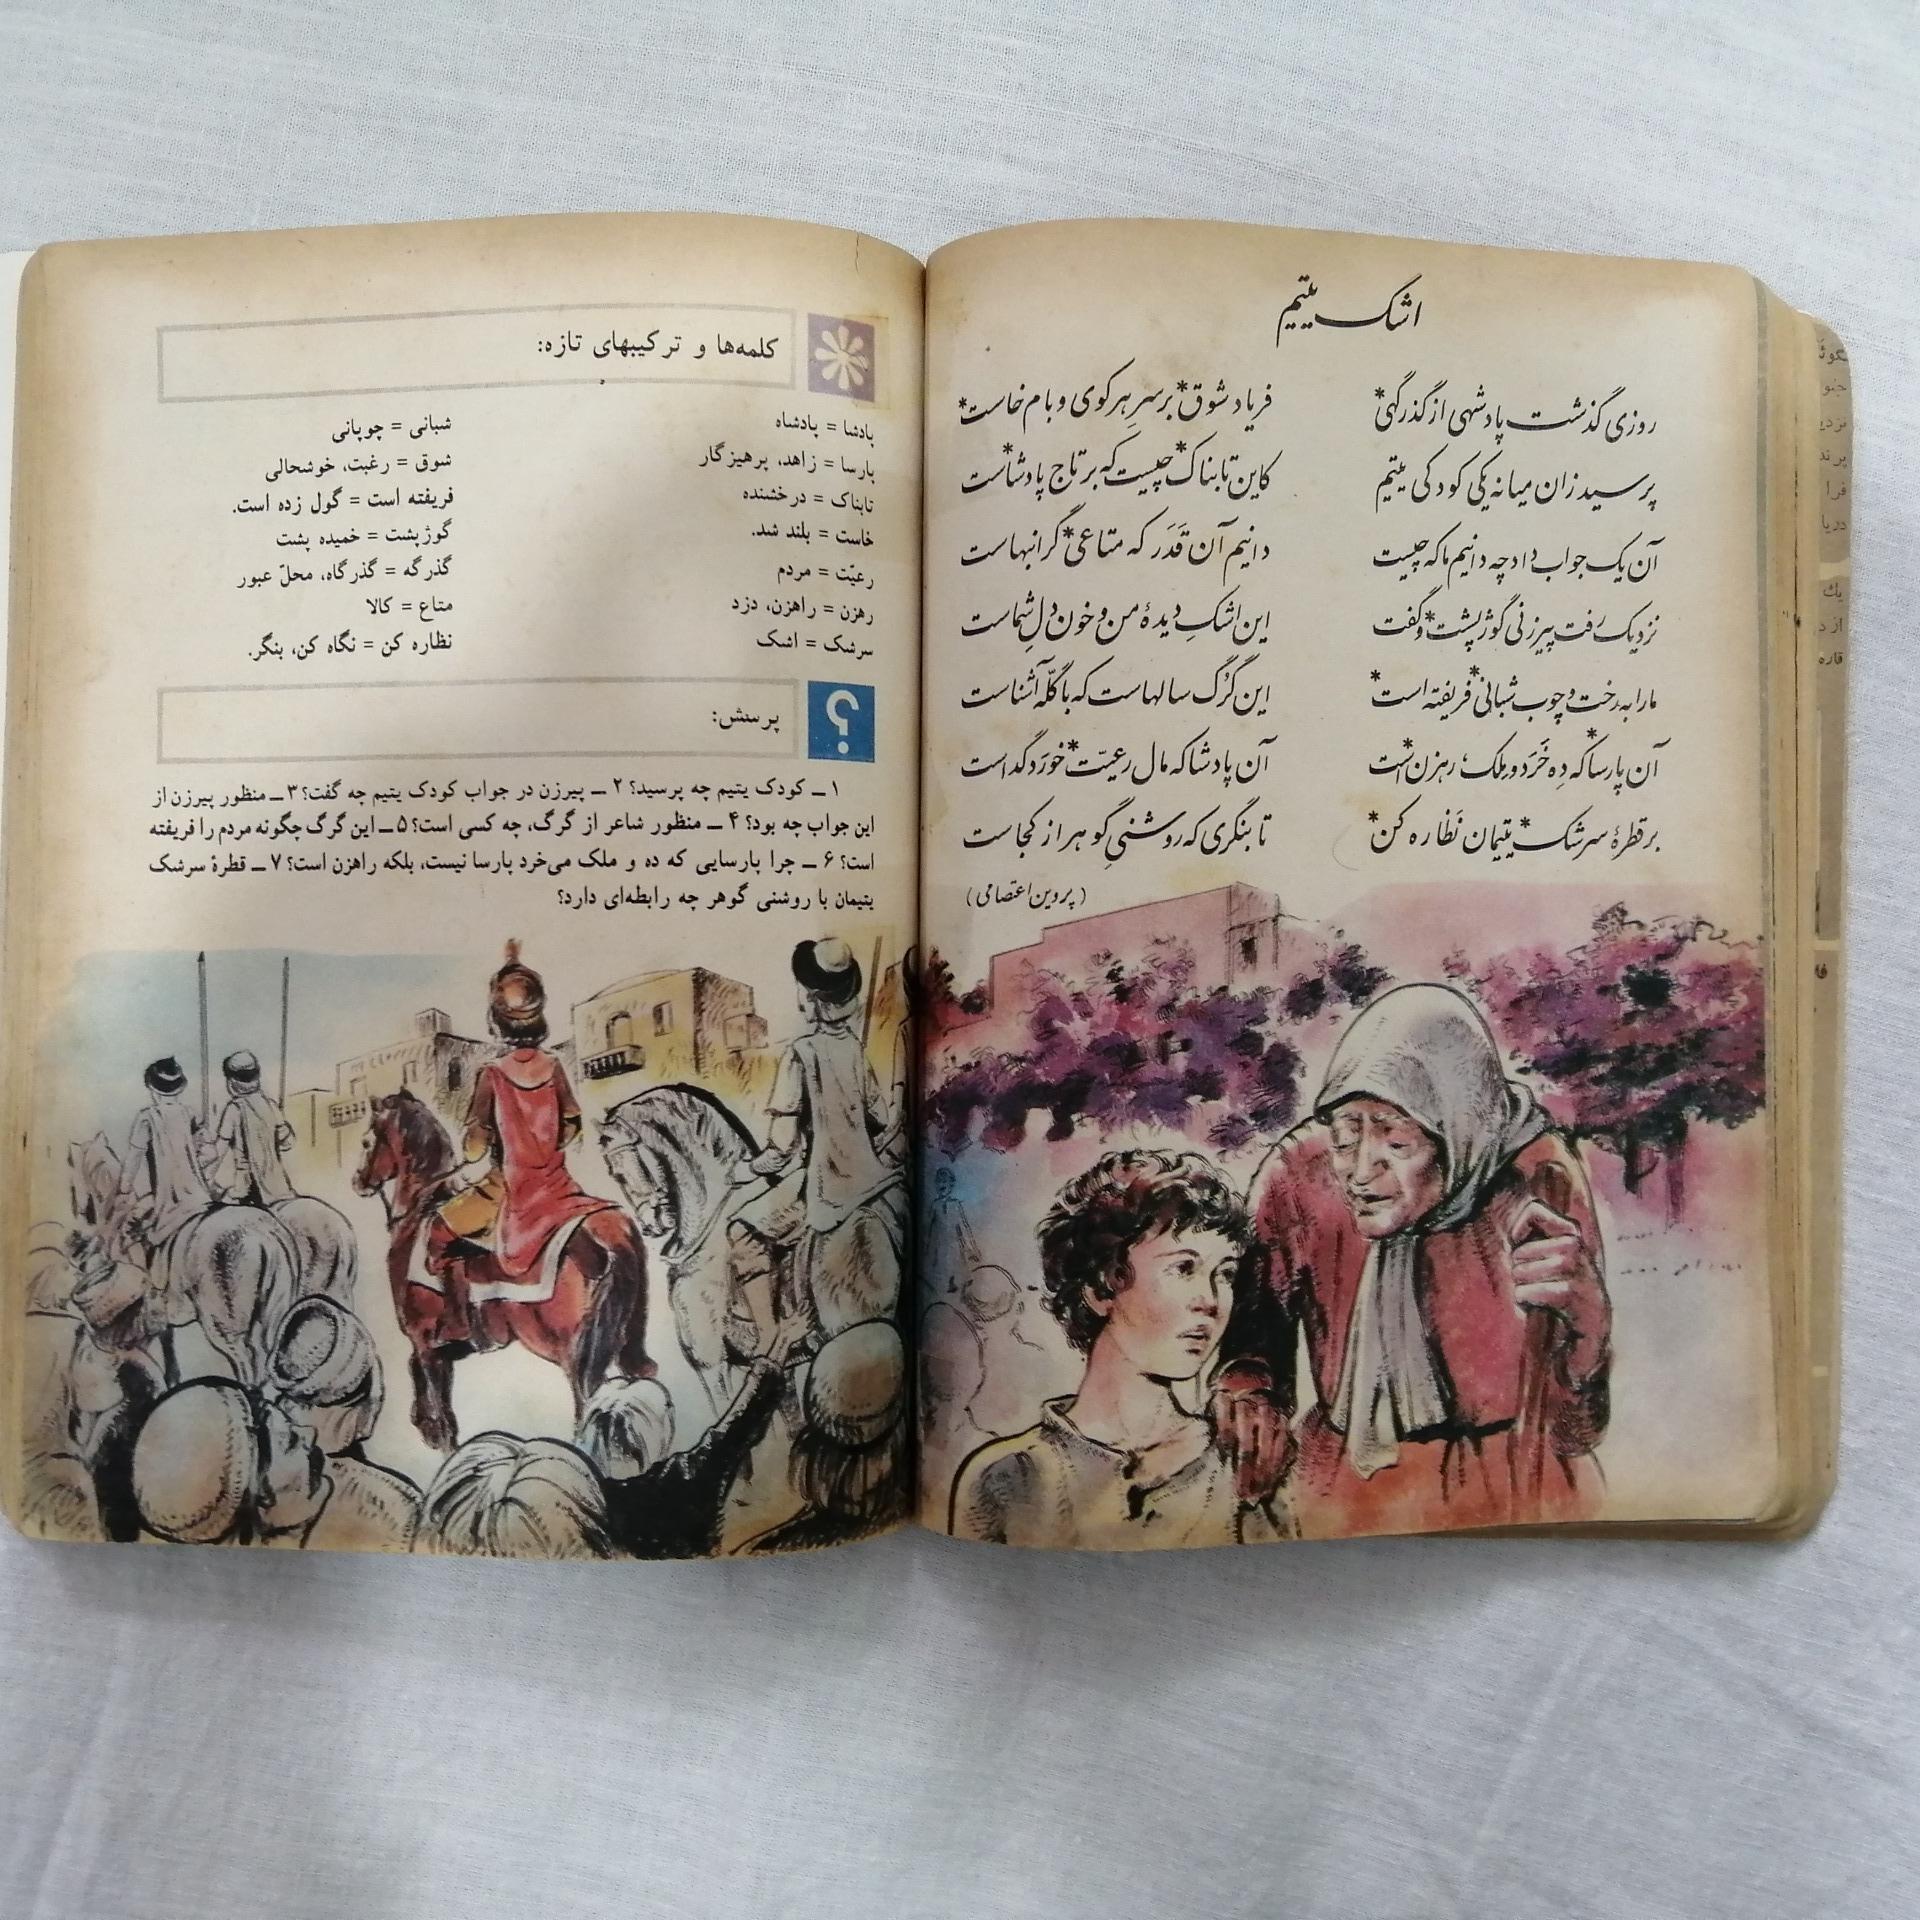 اشک یتیم
روزی گذشت پادشهی از گذرگهی* فریاد شوق* بر سرِ هر کوی و بام خاست*
پرسید زان میانه یکی کودکی یتیم کاین تابناک* چیست که بر تاج پادشاست*
آن یک جواب داد چه دانیم ما که چیست دانیم آن قَدَر که متاعی* گرانبهاست
نزدیک رفت پیرزنی گوژپشت* و گفت این اشکِ دیدهٔ من و خون دلِ شماست
ما را به رخت و چوب شبانی* فریفته است* این گُرگ سالهاست که با گلّه آشناست
آن پارسا* که دِه خَرَد و مِلک، رهزن* است آن پادشا که مال رعیّت* خورَد گداست
بر قطرهٔ سرشک* یتیمان نَظاره کن* تا بنگری که روشنیِ گوهر از کجاست
(پروین اعتصامی)
کلمه‌ها و ترکیبهای تازه:
پادشا = پادشاه
پارسا = زاهد، پرهیزگار
تابناک = درخشنده
خاست = بلند شد.
رعیّت = مردم
رهزن = راهزن، دزد
سرشک = اشک
شبانی = چوپانی
شوق = رغبت، خوشحالی
فریفته است = گول زده است.
گوژپشت = خمیده پشت
گذرگه = گذرگاه، محلّ عبور
متاع = کالا
نظاره کن = نگاه کن، بنگر.
؟
پرسش:
۱ ــ کودک یتیم چه پرسید؟ ۲ ــ پیرزن در جواب کودک یتیم چه گفت؟ ۳ ــ منظور پیرزن از
این جواب چه بود؟ ۴ ــ منظور شاعر از گرگ، چه کسی است؟ ۵ ــ این گرگ چگونه مردم را فریفته
است؟ ۶ ــ چرا پارسایی که ده و ملک می‌خرد پارسا نیست، بلکه راهزن است؟ ۷ ــ قطرهٔ سرشک
یتیمان با روشنی گوهر چه رابطه‌ای دارد؟